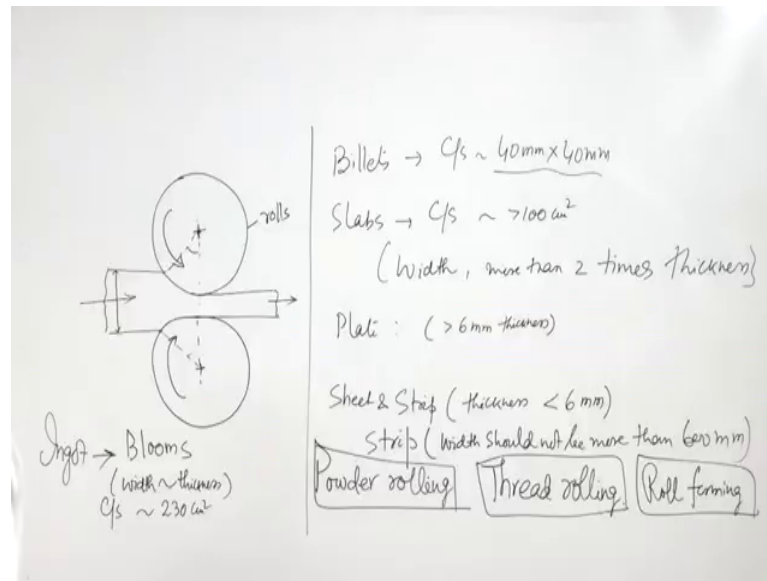 rolls
Ingot → Blooms
(width ~ thickness)
C/s ~ 230 cm²
Billets → C/s ~ 40mm×40mm
Slabs → C/s ~ >100 cm²
(Width, more than 2 times thickness)
Plate : (>6mm thickness)
Sheet & Strip (thickness < 6mm)
Strip (width should not be more than 600mm)
Powder rolling Thread rolling Roll forming